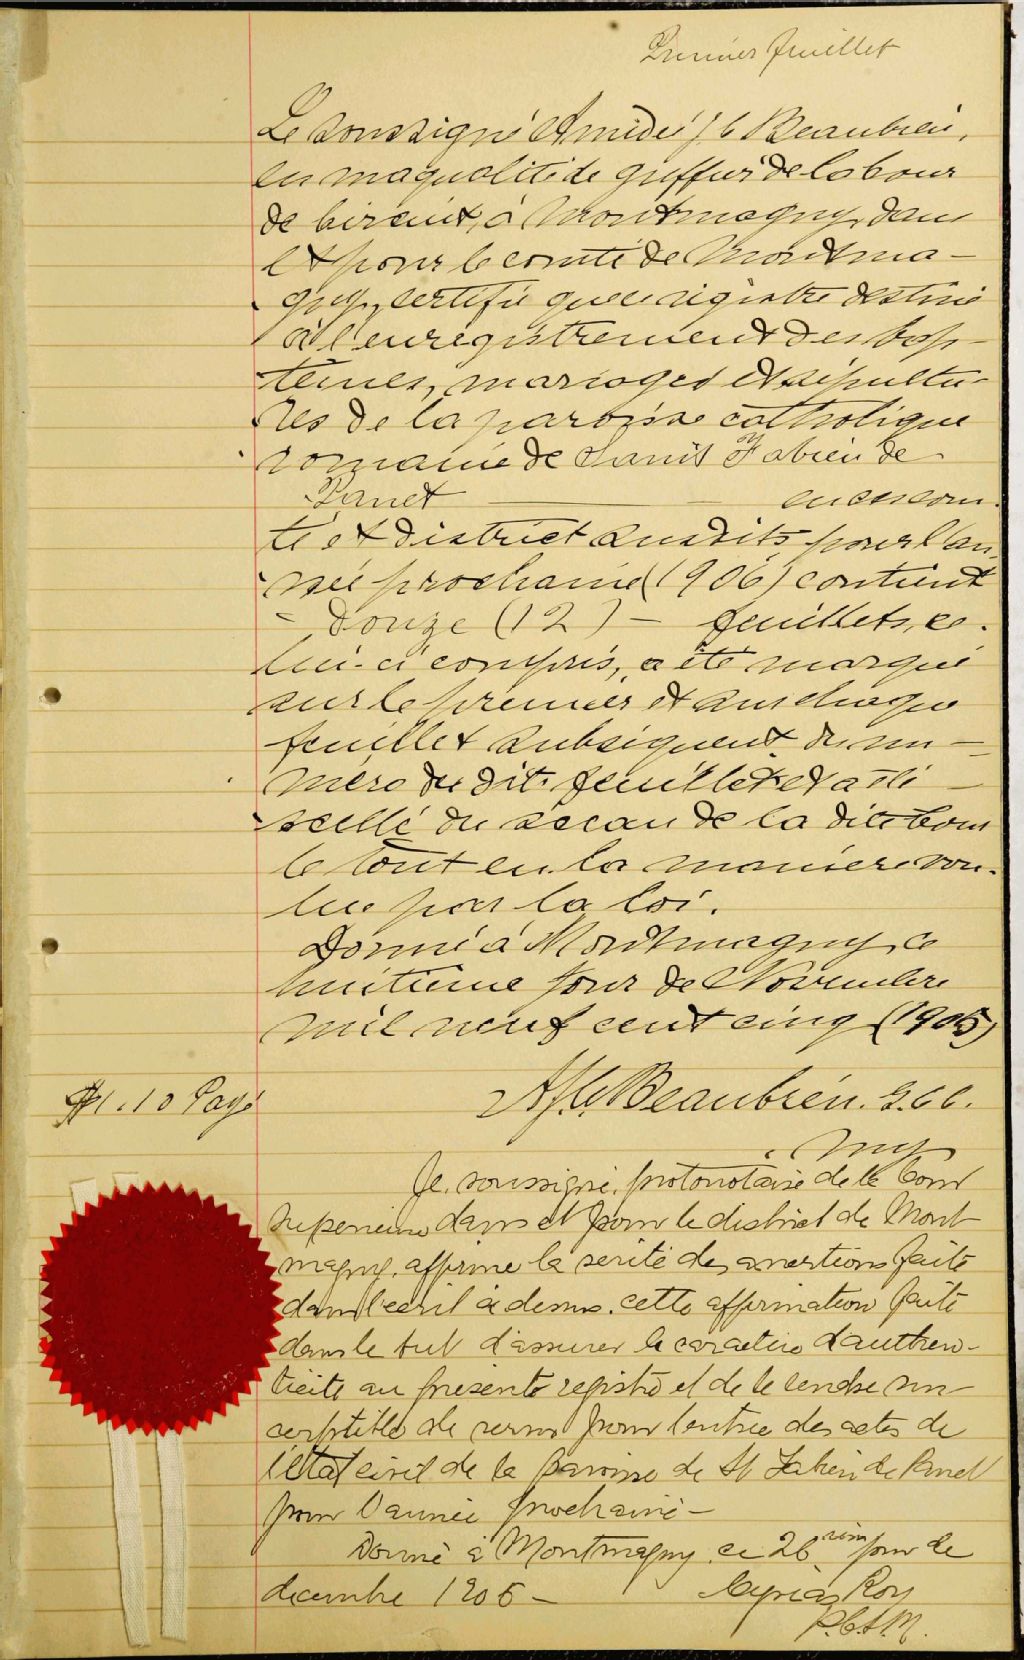 Premier feuillet
Le soussigné Amédée J. C. Beaubien,
en ma qualité de greffier de la Cour
de Circuit, à Montmagny, dans
et pour le comté de Montma-
gny, certifie que ce registre destiné
à l'enregistrement des bap-
têmes, mariages et sépultu-
res de la paroisse catholique
romaine de Saint Fabien de
Panet en ces com-
té et district susdits, pour l'an-
née prochaine (1906) contient
- Douze (12) - feuillets, ce-
lui-ci compris, a été marqué
sur le premier et sur chaque
feuillet subséquent du nu-
méro du dit feuillet et a été
scellé du sceau de la dite Cour
le tout en la manière vou-
lue par la loi.
Donné à Montmagny, ce
huitième jour de Novembre
mil neuf cent cinq (1905)
$1.10 Payé
A J. C. Beaubien. G.C.C.
My
Je, soussigné, protonotaire de la Cour
Superieure dans et pour le district de Mont-
magny, affirme la verité des assertions faite
dans l'écrit ci dessus. cette affirmation faite
dans le but d'assurer le caractère d'authen-
ticité au présent registre et de le rendre sus-
ceptible de servir pour l'entrée des actes de
l'état civil de la Paroisse de St Fabien de Panet
pour l'année prochaine -
Donné à Montmagny ce 26 ième jour de
decembre 1905 -
Cyprias Roy
P.C.S.M.